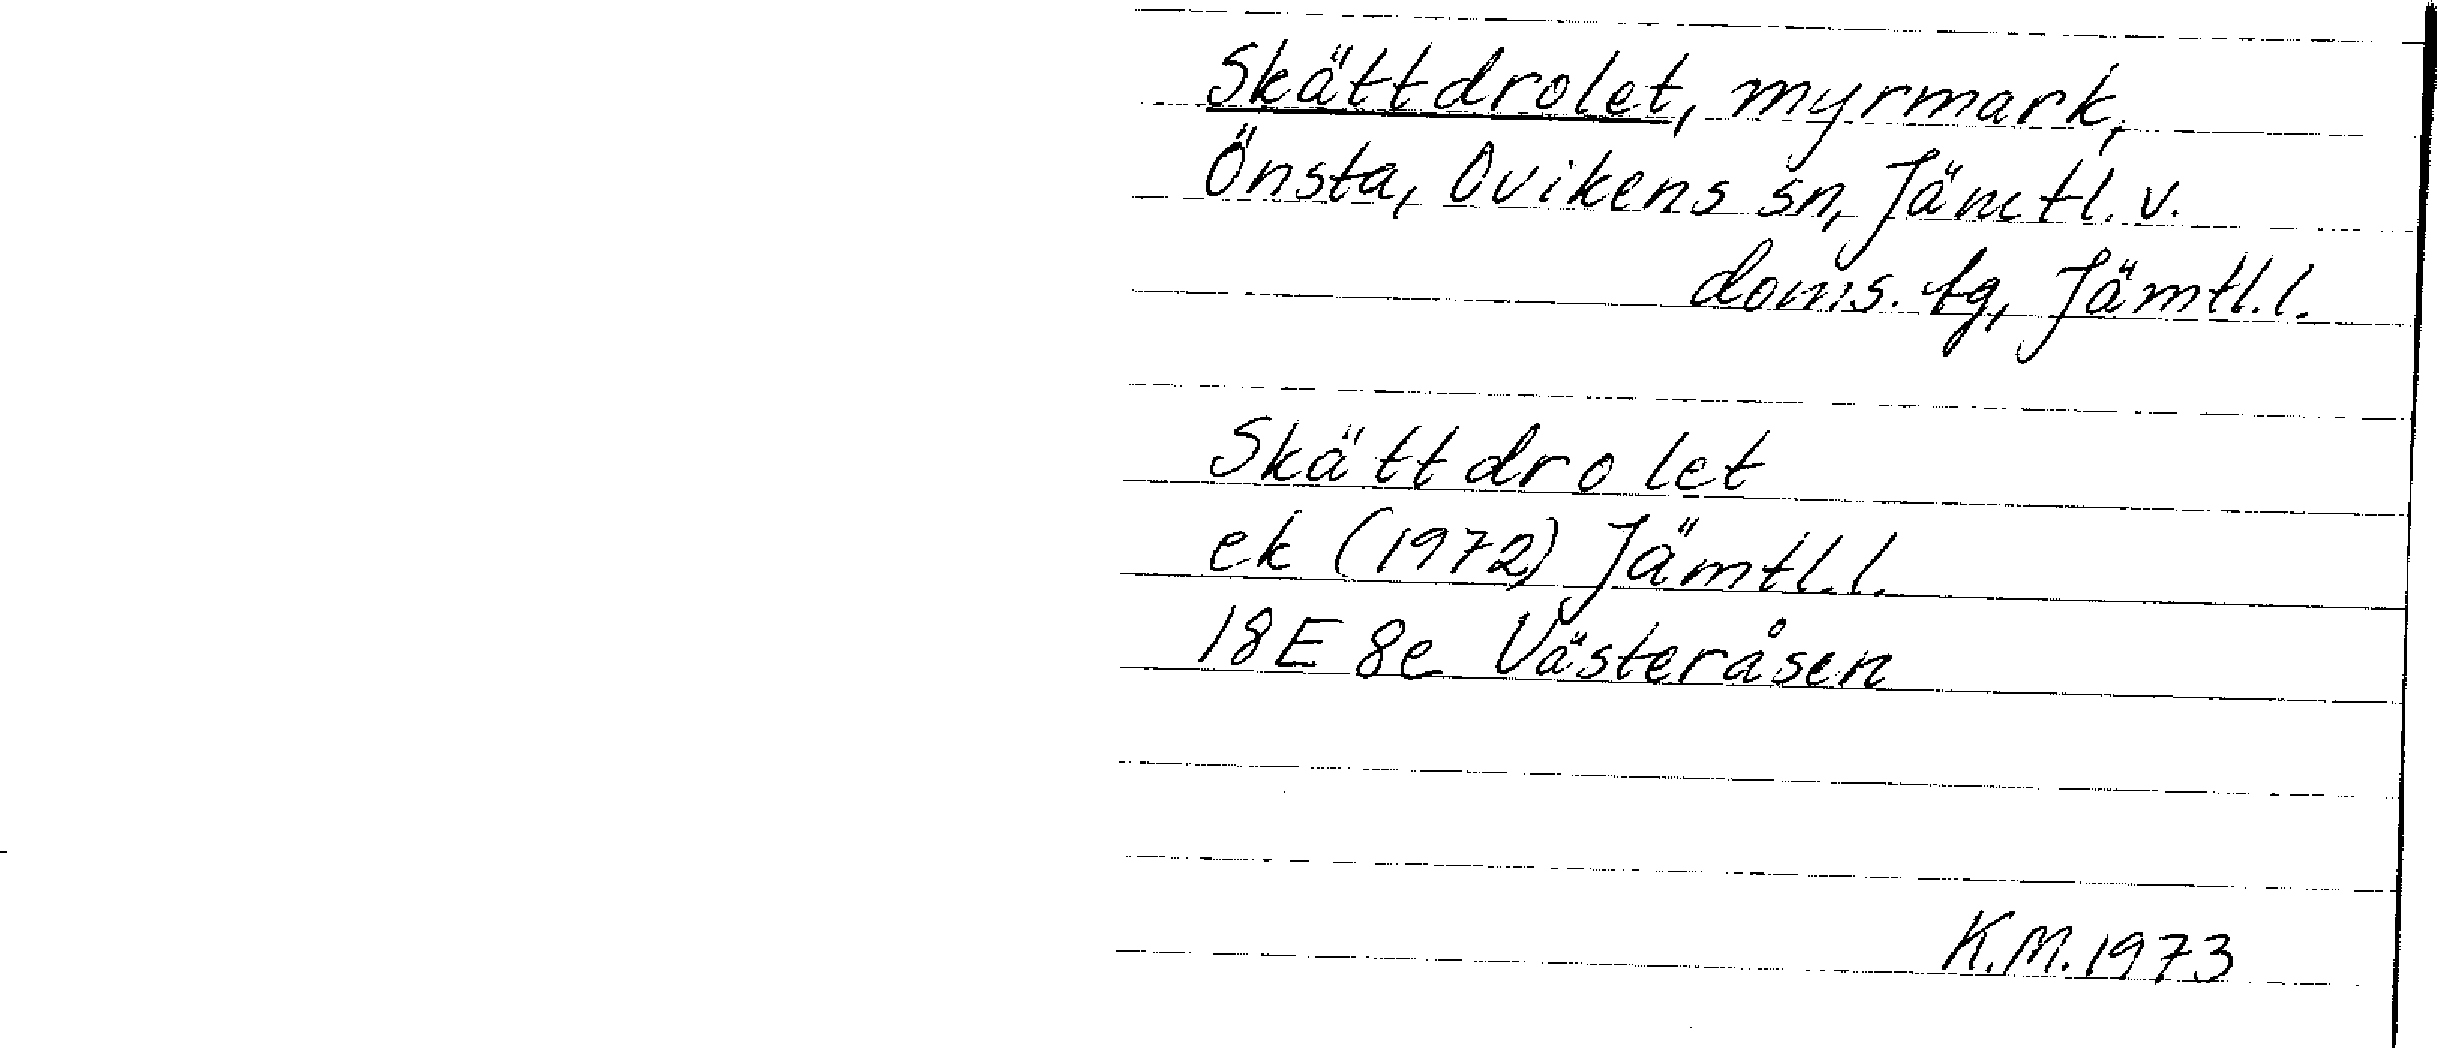 Skättdrolet, myrmark,
Önsta, Ovikens sn, Jämtl. v.
doms. tg, Jämtl. l.
Skättdrolet
ek (1972) Jämtl. l.
18E 8e Västeråsen
K.M. 1973